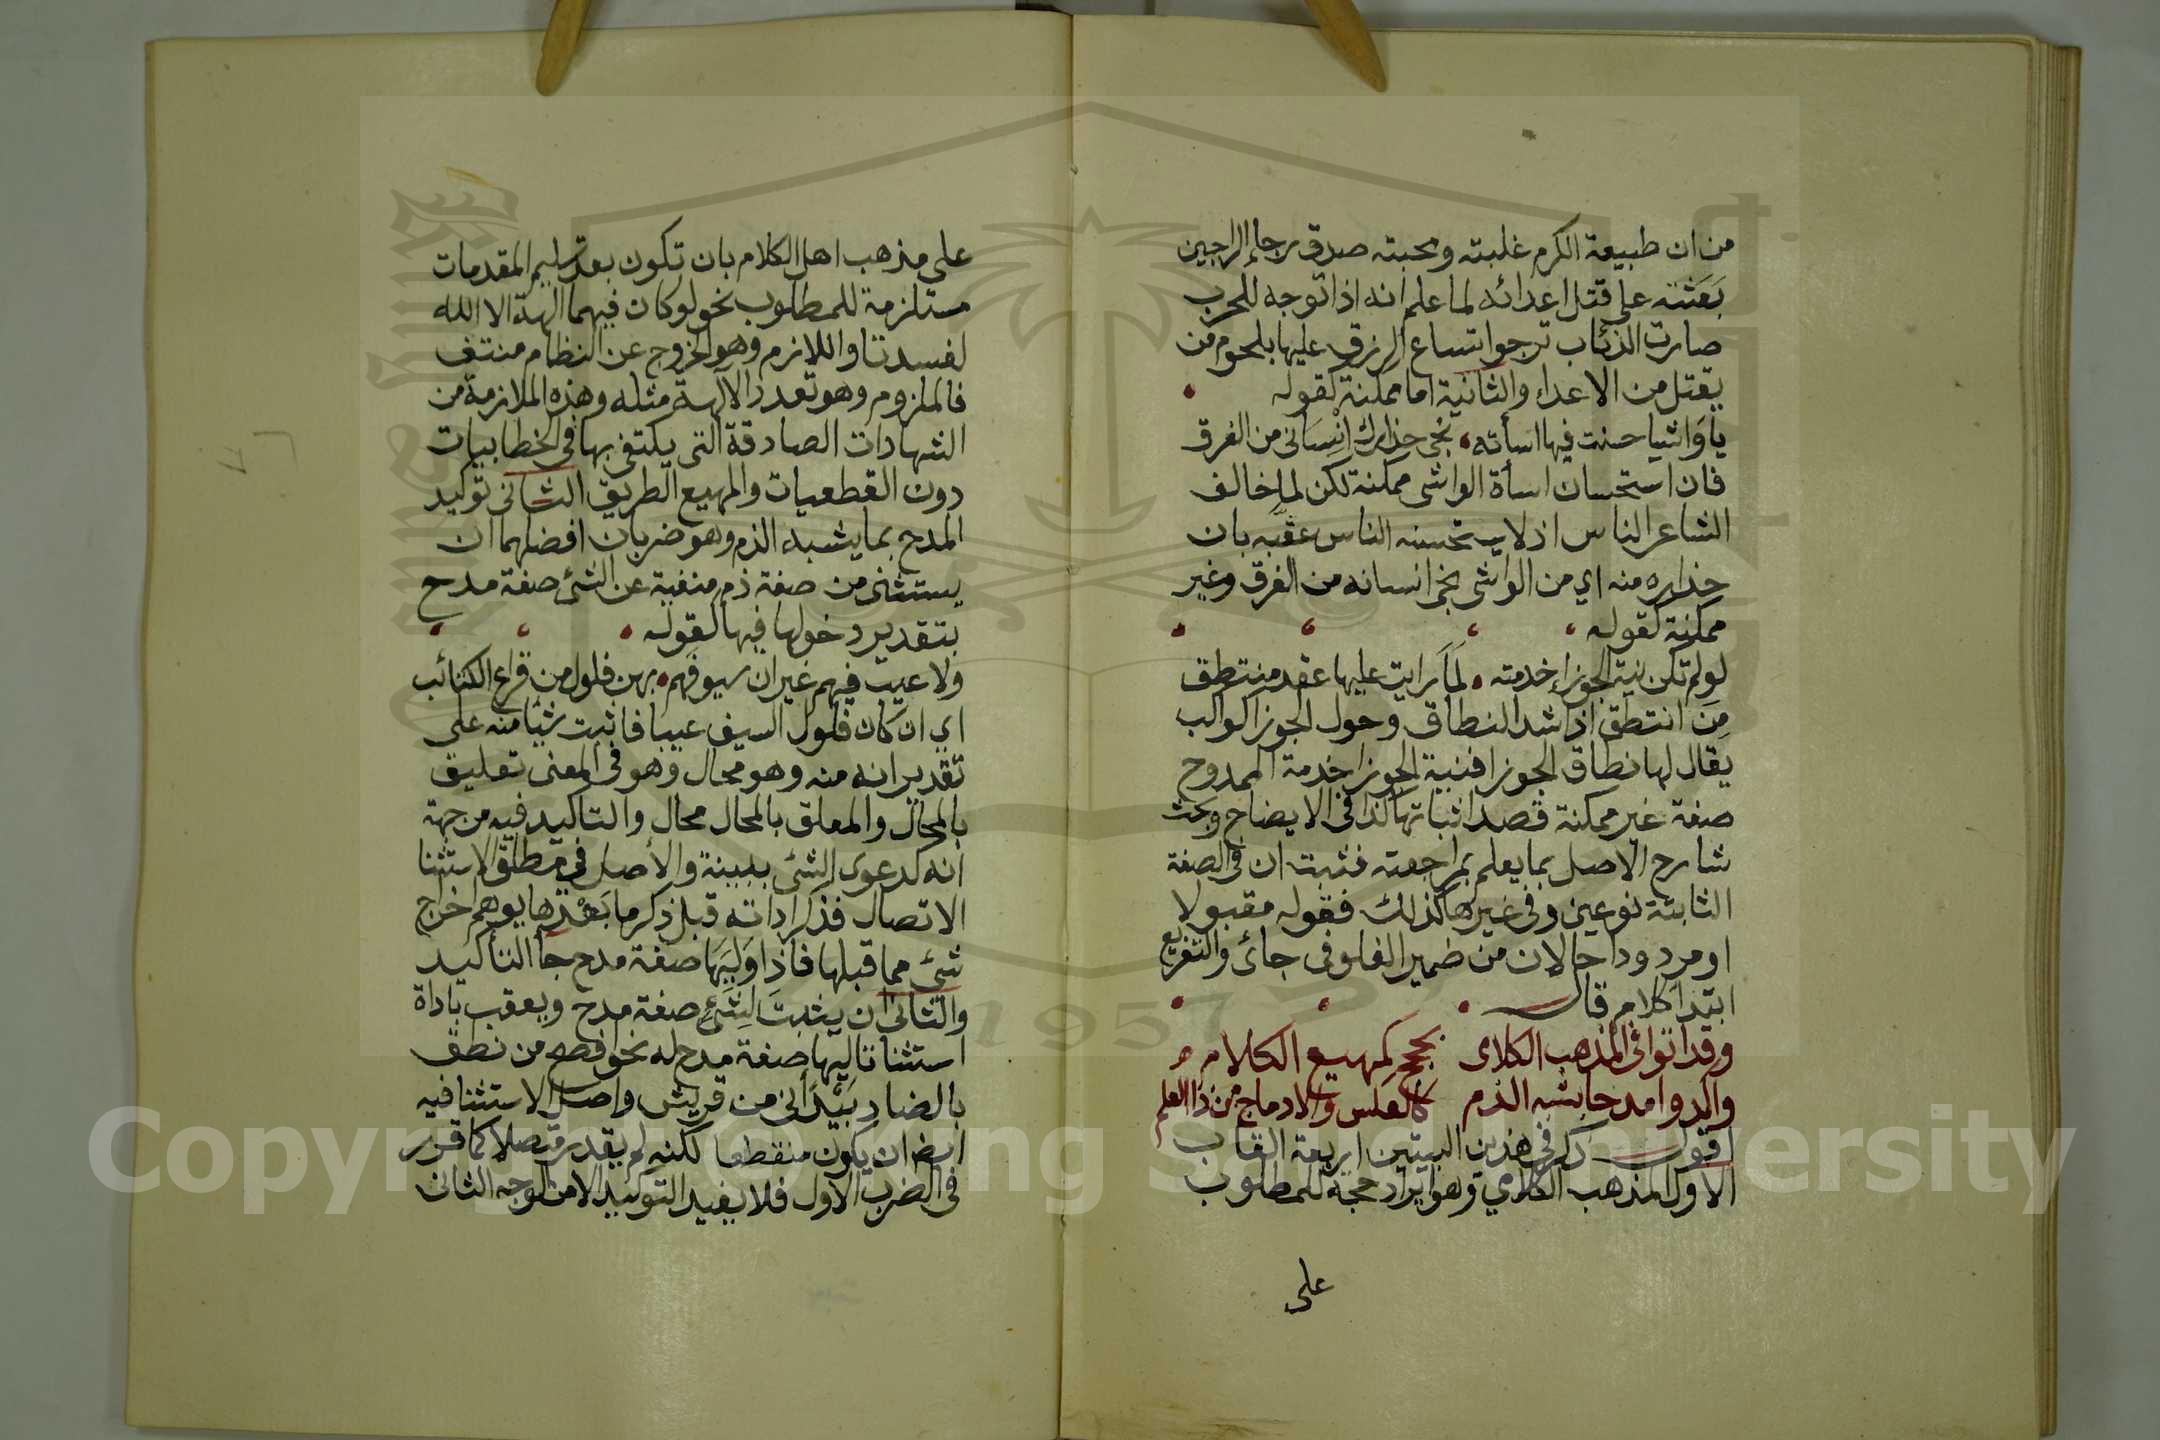 من ان طبيعة الكرم غلبته ومحبته صدق رجاء الراجين
بَعَثته على قتل اعدائه لما علم انه اذا توجه للحرب
صارت الذئاب ترجوا اتساع الرزق عليها بلحوم من
يقتل من الاعداء والثانية اما ممكنة كقوله
يا وَاشيا حسنت فيها اسأته نجى حذارك اِنْسَانى من الغرق
فان استحسان اسأة الواشى ممكنة لكن لما خالف
الشاعر الناس اذ لا يستحسنه الناس عقّبه بان
حذاره منه اي من الواشى نجى انسانه من الغرق وغير
ممكنة كقوله
لو لم تكن نية الجوزاء خدمته لَمَا رايت عليها عقد منتطق
مِنَ انتطق اذا شد النطاق وحول الجوزا كواكب
يقال لها نطاق الجوزا فنية الجوزا خدمة الممدوح
صفة غير ممكنة قصد اثباتها كذا فى الايضاح وبحث
شارح الاصل بما يعلم بمراجعته فثبت ان فى الصفة
الثابتة نوعين وفى غيرها كذلك فقوله مقبولا
او مردودا حالان من ضمير الغلو فى جائ والتفريع
ابتدا كلام قال
وقد اتوا فى المذهب الكلامى بحجج كمهيع الكلام
واكدوا مدحا بشبه الذم كالعكس والادماج من ذا العلم
اقول ذكر فى هذين البيتين اربعة القاب
الاول المذهب الكلامي وهو ايراد حجة للمطلوب
على
على مذهب اهل الكلام بان تكون بعد تسليم المقدمات
مستلزمة للمطلوب نحو لو كان فيهما الهة الا الله
لفسدتا واللازم وهو الخروج عن النظام منتف
فالملزوم وهو تعدد الآلهة مثله وهذه الملازمة من
الشهادات الصادقة التى يكتفى بها فى الخطابيات
دون القطعيات والمهيع الطريق الثانى توكيد
المدح بما يشبه الذم وهو ضربان افضلهما ان
يستثنى من صفة ذم منفية عن الشئ صفة مدح
بتقدير دخولها فيها كقوله
ولا عيب فيهم غير ان سيوفهم بهن فلول من قراع الكتائب
اي ان كان فلول السيف عيبا فاثبت شيا منه على
تقدير انه منه وهو محال وهو فى المعنى تعليق
بالمحال والمعلق بالمحال محال والتاكيد فيه من جهة
انه كدعوى الشئ ببينة والأصل فى مطلق الاستثنا
الاتصال فذكر اداته قبل ذكر ما بَعْدَها يوهم اخراج
شئ مما قبلها فاذا وَلِيَهَا صفة مدح جأ التأكيد
والثانى ان يثبت لِشَئٍ صفة مدح ويعقب باداة
استثنا تاليها صفة مدح له نحو افصح من نطق
بالضاد بَيْدَ أنى من قريش واصل الاستثنا فيه
ايض ان يكون منقطعا لكنه لم يقدر متصلا كما قرر
فى الضرب الاول فلا يفيد التوكيد الا من الوجه الثانى
Copyright © King Saud University
1957